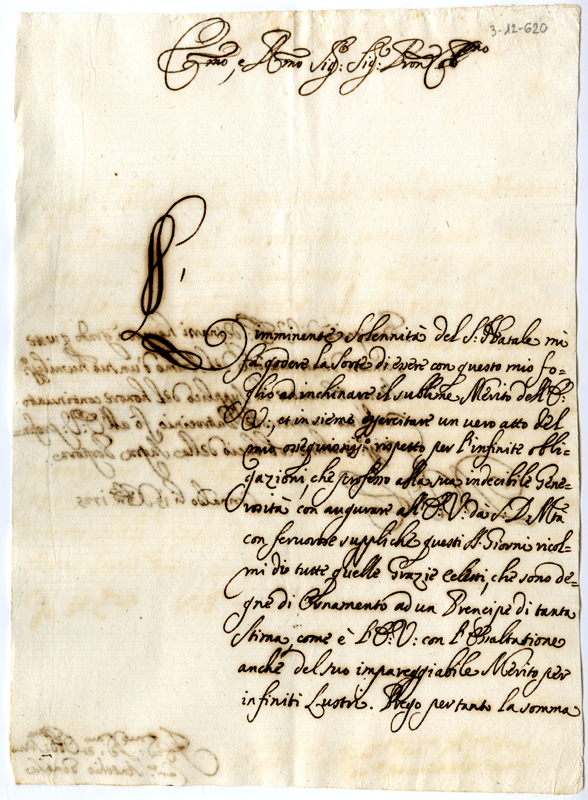 3-12-620
Em.mo, e R.mo Sig:r Sig:r Pron Col.mo
L'
imminente Solennità del S. Natale mi
fà godere la sorte di essere con questo mio fo=
glio ad inchinare il sublime Merito dell'E:
V:, et insieme essercitare un vero atto del
mio ossequiosiss.o rispetto per l'infinite obli=
gazioni, che professo alla sua indecibile Gene=
rosità con augurare all'E:V: da S: D: M.tà
con fervorose suppliche questi S. Giorni ricol=
mi di tutte quelle Grazie Celesti, che sono de=
gne di Ornamento ad un Prencipe di tanta
stima, come è l'E:V: con l'Esaltatione
anche del suo impareggiabile Merito per
infiniti Lustri. Prego per tanto la somma